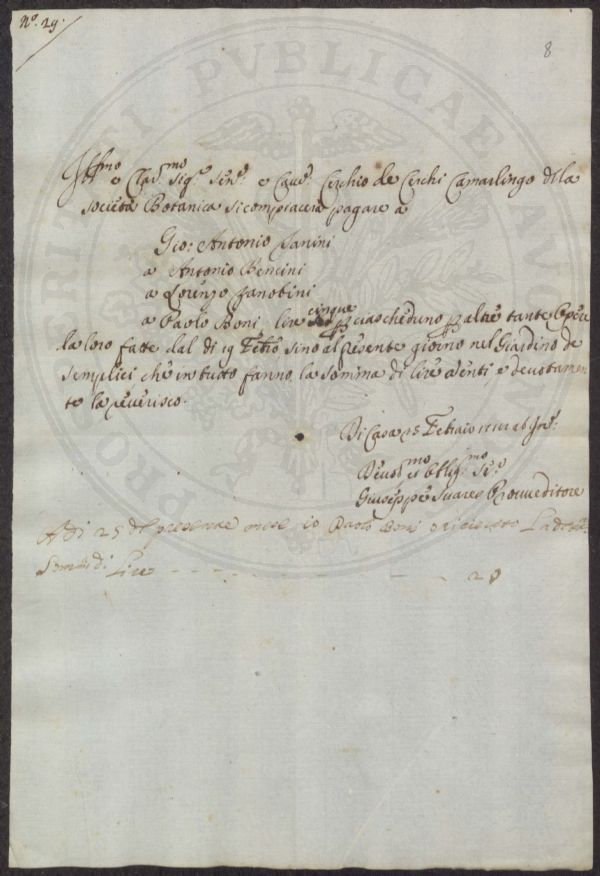 Nº. 29.
8
Ill.mo e Clar.mo Sig.e Sen.e e Cav.e Cerchio de Cerchi Camarlingo d la
Società Botanica si compiacerà pagare a
Gio: Antonio Janini
a Antonio Bencini
a Lorenzo Zanobini
a Paolo Boni lire cinque p ciascheduno p altre tante Opere
la loro fatte dal di 19 Febrio sino al presente giorno nel Giardino de
Semplici che in tutto fanno la somma di lire venti, e devotamen
te la reverisco.
Di Casa 25 Febraio
Devot.mo et Oblig.mo Se.e
Giuseppe Suares Provveditore
A di 25 del presente mese io Paolo Boni o ricevuto La detta
Somma di Lire - - - - - - - - - 20
PROSPERITATI PVBLICAE AVGENDAE